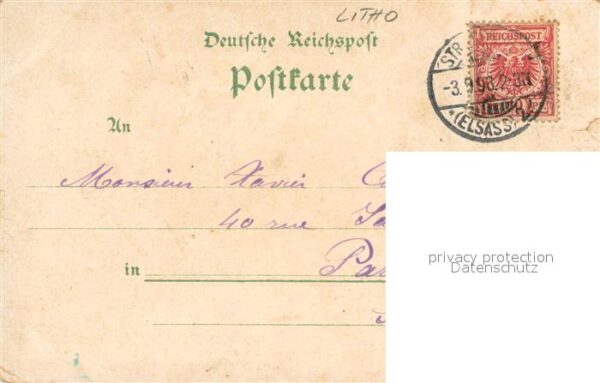 LITHO
Deutsche Reichspost
Postkarte
REICHSPOST
STR
-3.9.98.
*(ELSASS)
An
Monsieur Xavier
40 rue
in
privacy protection
Datenschutz